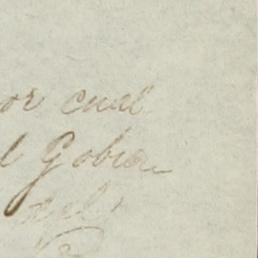 or cual
l Gobier
del